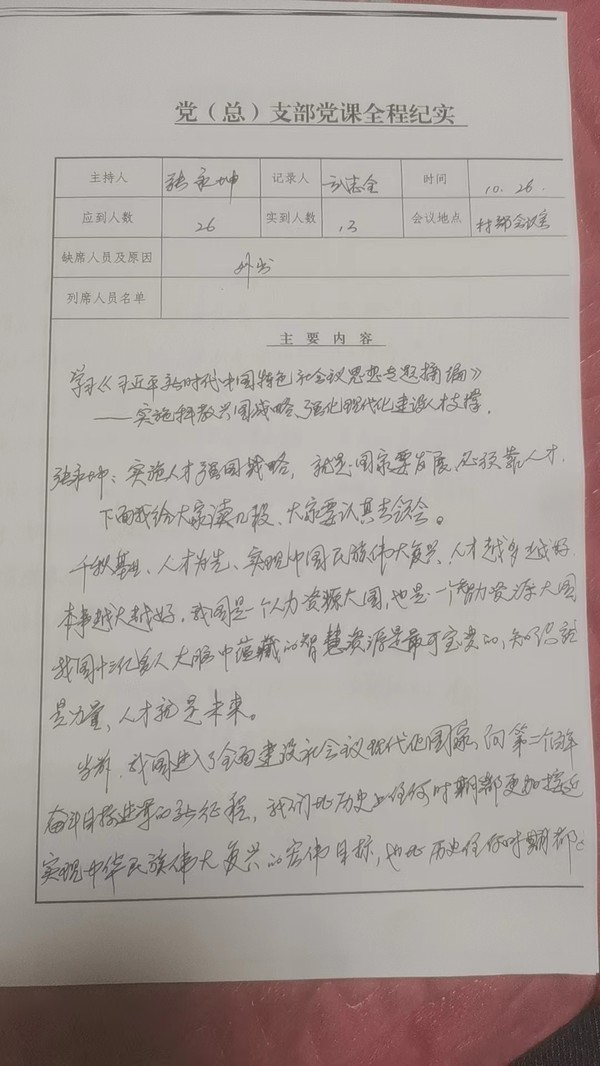 党（总）支部党课全程纪实
主持人 张永坤 记录人 志全 时间 10.26.
应到人数 26 实到人数 13 会议地点 村部会议室
缺席人员及原因 外出
列席人员名单
主要内容
学习《习近平新时代中国特色社会主义思想专题摘编》
——实施科教兴国战略、强化现代化建设人才支撑.
张永坤：实施人才强国战略，就是国家要发展，必须靠人才.
下面我给大家读几段、大家要认真去领会。
千秋基业、人才为先、实现中国民族伟大复兴、人才越多越好
本事越大越好，我国是一个人力资源大国，也是一个智力资源大国
我国十三亿多人大脑中蕴藏的智慧资源是最可宝贵的，知识就
是力量，人才就是未来。
当前，我国进入了全面建设社会主义现代化国家、向第二个百年
奋斗目标进军的新征程，我们比历史上任何时期都更加接近
实现中华民族伟大复兴的宏伟目标，也比历史任何时期都